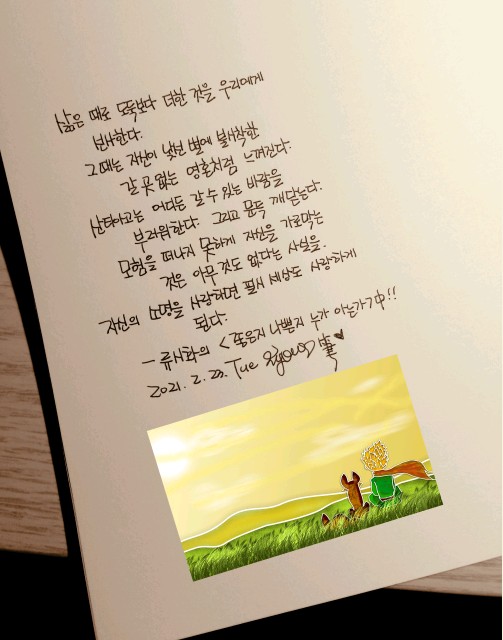 삶은 때로 모욕보다 더한 것을 우리에게
선사한다.
그때는 자신이 낯선 별에 불시착한
갈 곳 없는 영혼처럼 느껴진다.
산티아고는 어디든 갈 수 있는 바람을
부러워한다. 그리고 문득 깨닫는다.
모험을 떠나지 못하게 자신을 가로막는
것은 아무것도 없다는 사실을.
자신의 소명을 사랑하면 필시 세상도 사랑하게
된다.
- 류시화의 <좋은지 나쁜지 누가 아는가 中!!
2021. 2. 23. Tue